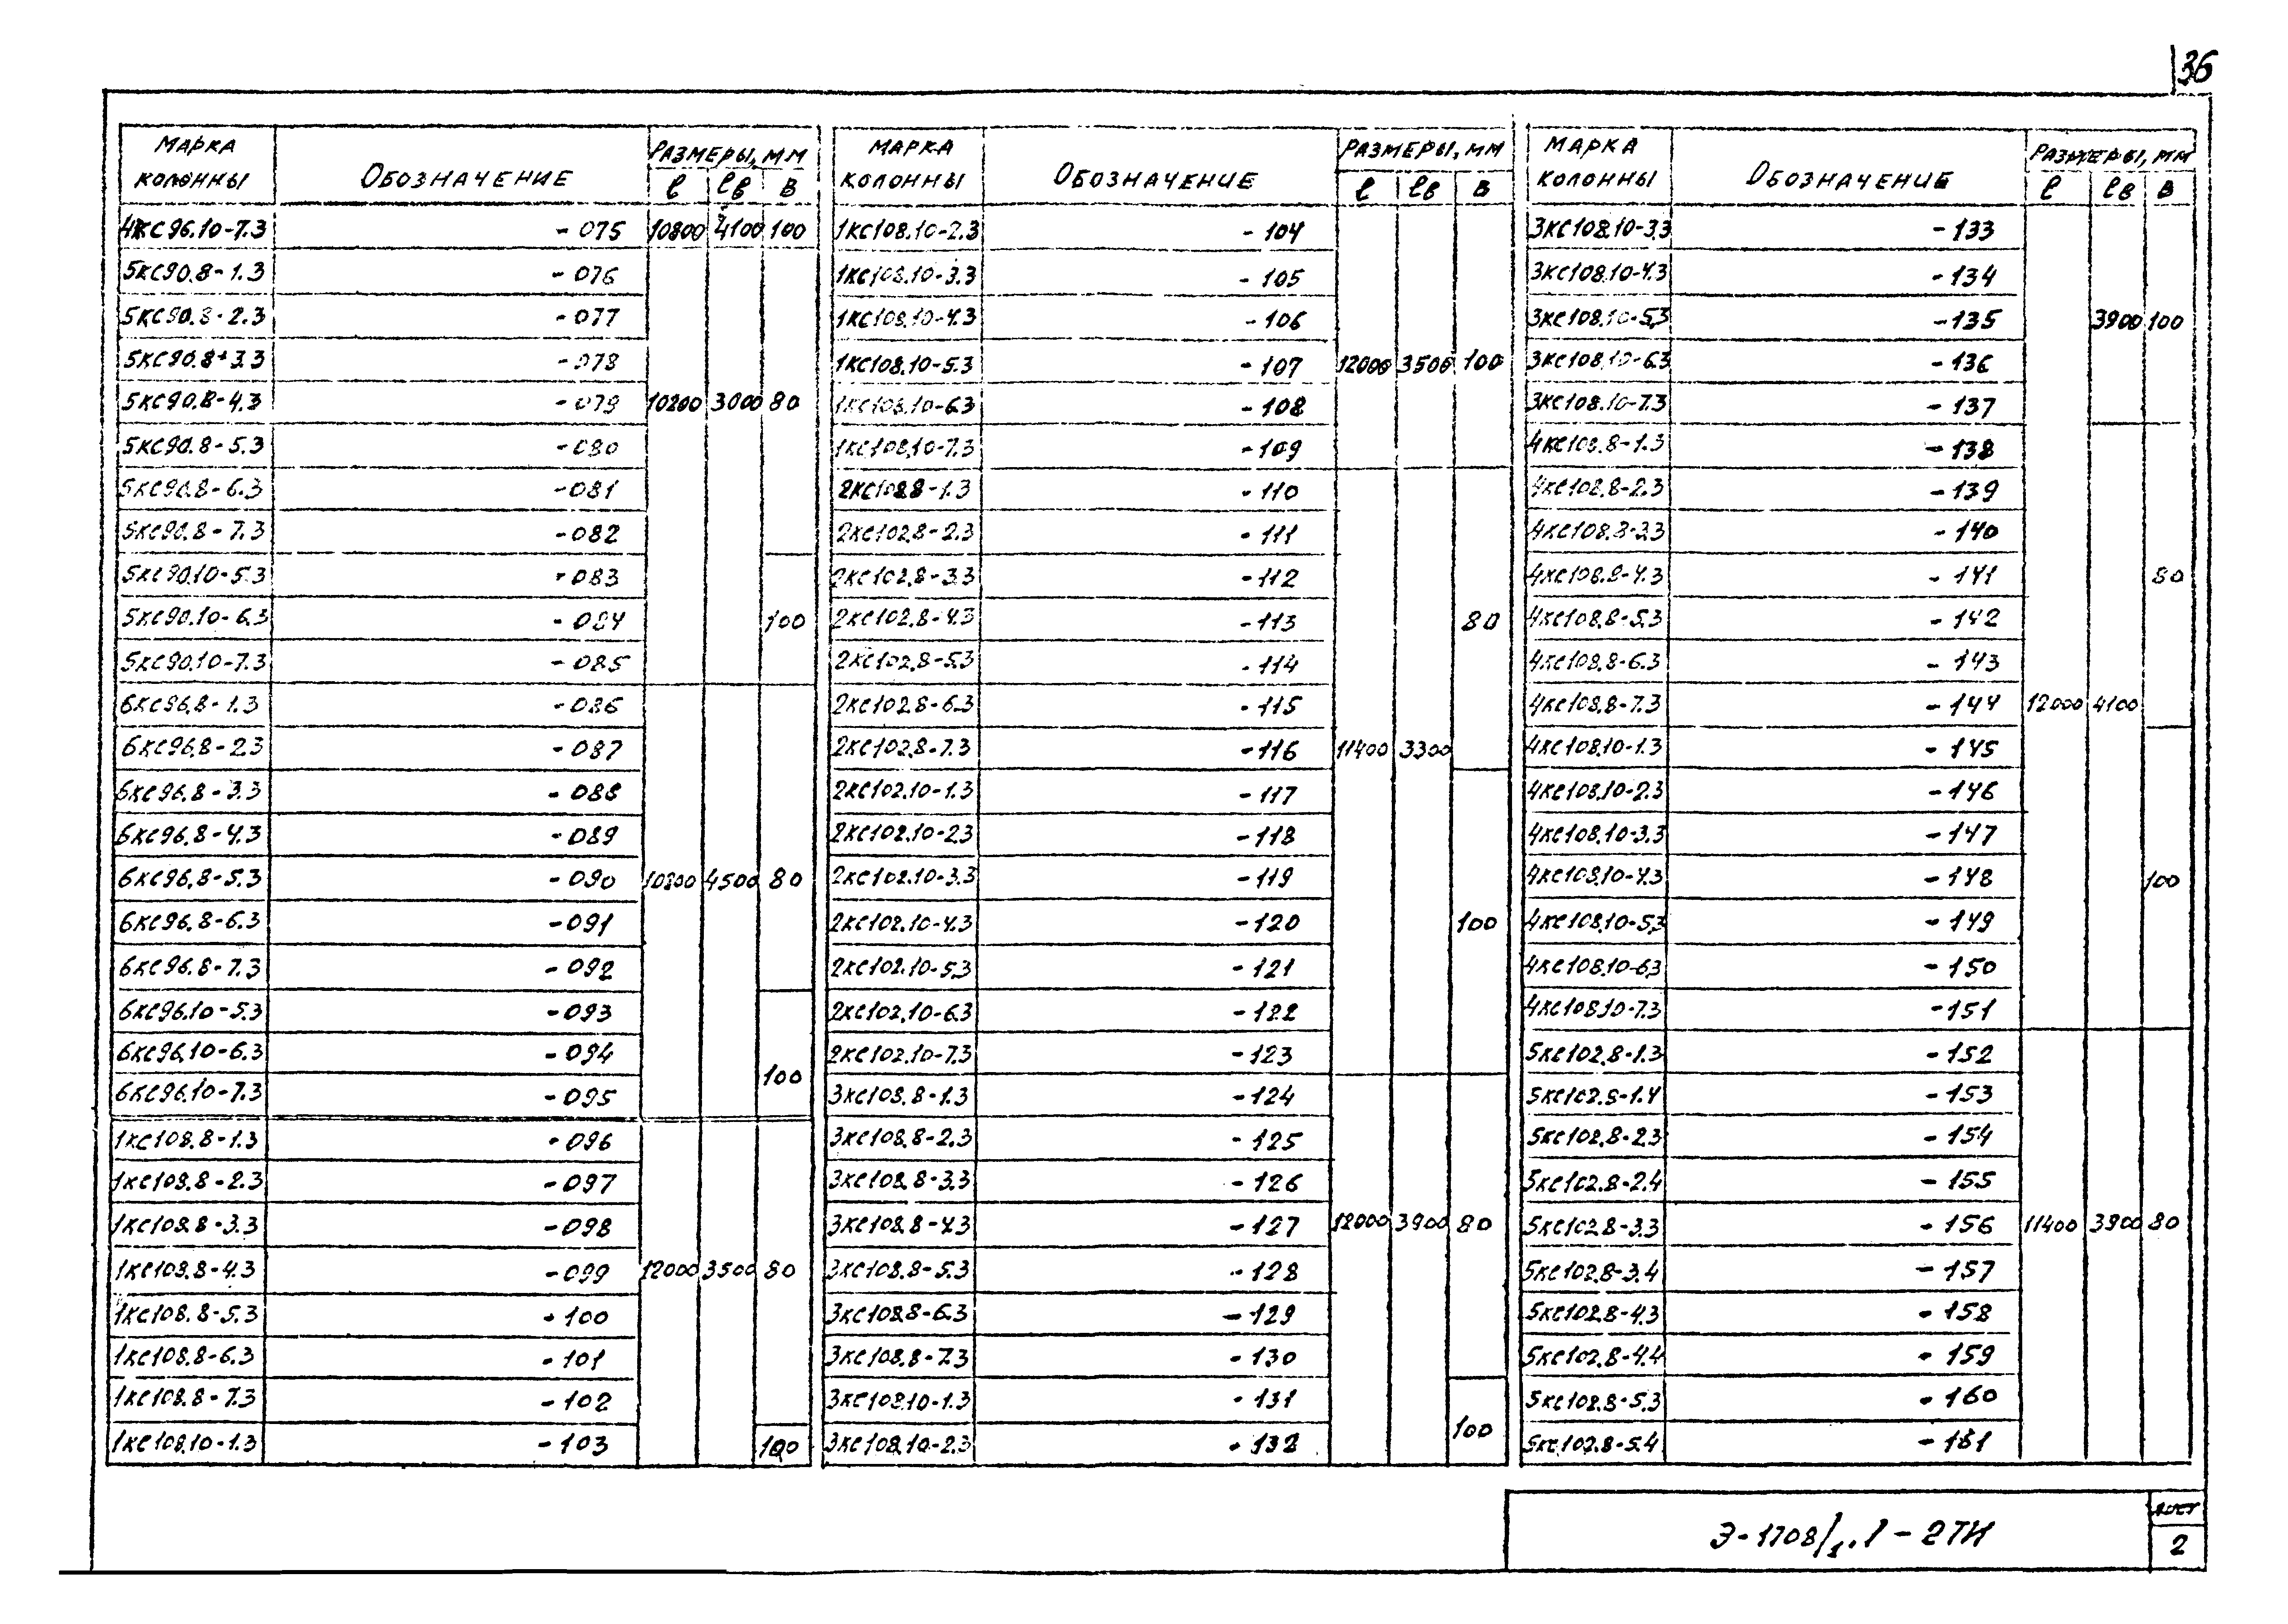 36
МАРКА КОЛОННЫ ОБОЗНАЧЕНИЕ РАЗМЕРЫ, ММ ℓ ℓв В
4КС96.10-7.3 -075 10800 4100 100
5КС90.8-1.3 -076
5КС90.8-2.3 -077
5КС90.8-3.3 -078
5КС90.8-4.3 -079 10200 3000 80
5КС90.8-5.3 -080
5КС90.8-6.3 -081
5КС90.8-7.3 -082
5КС90.10-5.3 -083
5КС90.10-6.3 -084 100
5КС90.10-7.3 -085
6КС96.8-1.3 -086
6КС96.8-2.3 -087
6КС96.8-3.3 -088
6КС96.8-4.3 -089
6КС96.8-5.3 -090 10800 4500 80
6КС96.8-6.3 -091
6КС96.8-7.3 -092
6КС96.10-5.3 -093
6КС96.10-6.3 -094 100
6КС96.10-7.3 -095
1КС108.8-1.3 -096
1КС108.8-2.3 -097
1КС108.8-3.3 -098
1КС108.8-4.3 -099 12000 3500 80
1КС108.8-5.3 -100
1КС108.8-6.3 -101
1КС108.8-7.3 -102
1КС108.10-1.3 -103 100
МАРКА КОЛОННЫ ОБОЗНАЧЕНИЕ РАЗМЕРЫ, ММ ℓ ℓв В
1КС108.10-2.3 -104
1КС108.10-3.3 -105
1КС108.10-4.3 -106
1КС108.10-5.3 -107 12000 3500 100
1КС108.10-6.3 -108
1КС108.10-7.3 -109
2КС102.8-1.3 -110
2КС102.8-2.3 -111
2КС102.8-3.3 -112
2КС102.8-4.3 -113 80
2КС102.8-5.3 -114
2КС102.8-6.3 -115
2КС102.8-7.3 -116 11400 3300
2КС102.10-1.3 -117
2КС102.10-2.3 -118
2КС102.10-3.3 -119
2КС102.10-4.3 -120 100
2КС102.10-5.3 -121
2КС102.10-6.3 -122
2КС102.10-7.3 -123
3КС108.8-1.3 -124
3КС108.8-2.3 -125
3КС108.8-3.3 -126
3КС108.8-4.3 -127 12000 3900 80
3КС108.8-5.3 -128
3КС108.8-6.3 -129
3КС108.8-7.3 -130
3КС108.10-1.3 -131
3КС108.10-2.3 -132 100
МАРКА КОЛОННЫ ОБОЗНАЧЕНИЕ РАЗМЕРЫ, ММ ℓ ℓв В
3КС108.10-3.3 -133
3КС108.10-4.3 -134
3КС108.10-5.3 -135 3900 100
3КС108.10-6.3 -136
3КС108.10-7.3 -137
4КС108.8-1.3 -138
4КС108.8-2.3 -139
4КС108.8-3.3 -140
4КС108.8-4.3 -141 80
4КС108.8-5.3 -142
4КС108.8-6.3 -143
4КС108.8-7.3 -144 12000 4100
4КС108.10-1.3 -145
4КС108.10-2.3 -146
4КС108.10-3.3 -147
4КС108.10-4.3 -148 100
4КС108.10-5.3 -149
4КС108.10-6.3 -150
4КС108.10-7.3 -151
5КС102.8-1.3 -152
5КС102.8-1.4 -153
5КС102.8-2.3 -154
5КС102.8-2.4 -155
5КС102.8-3.3 -156 11400 3900 80
5КС102.8-3.4 -157
5КС102.8-4.3 -158
5КС102.8-4.4 -159
5КС102.8-5.3 -160
5КС102.8-5.4 -161
Э-1708/1.1-2ТИ
ЛИСТ
2